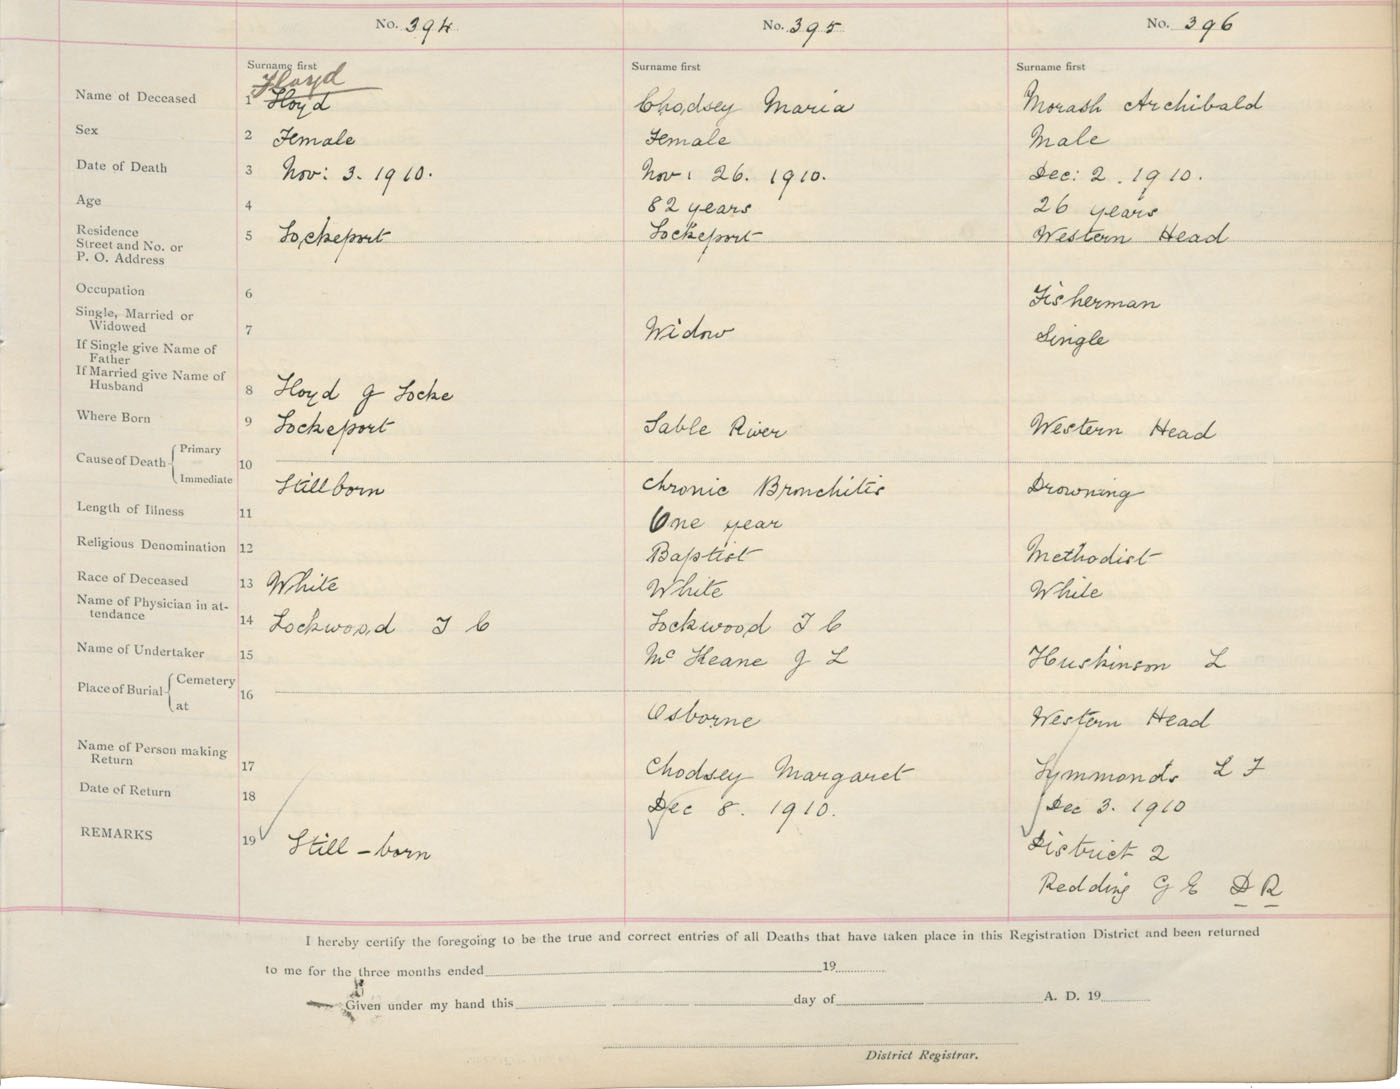 No. 394 No. 395 No. 396
Surname first Surname first Surname first
Floyd
Name of Deceased 1 Floyd Chodsey Maria Morash Archibald
Sex 2 Female Female Male
Date of Death 3 Nov: 3. 1910. Nov: 26. 1910. Dec: 2. 1910.
Age 4 82 years 26 years
Residence 5 Lockeport Lockeport Western Head
Street and No. or
P. O. Address
Occupation 6 Fisherman
Single, Married or
Widowed 7 Widow Single
If Single give Name of
Father
If Married give Name of
Husband 8 Floyd G Locke
Where Born 9 Lockeport Sable River Western Head
Cause of Death Primary 10
Immediate Stillborn Chronic Bronchitis Drowning
Length of Illness 11 One year
Religious Denomination 12 Baptist Methodist
Race of Deceased 13 White White White
Name of Physician in at-
tendance 14 Lockwood T C Lockwood T C
Name of Undertaker 15 McKeane J L Huskinson L
Place of Burial Cemetery 16
at Osborne Western Head
Name of Person making
Return 17 Chodsey Margaret Symmonds L F
Date of Return 18 Dec 8. 1910. Dec 3. 1910
REMARKS 19 Still-born District 2
Redding G E D R
I hereby certify the foregoing to be the true and correct entries of all Deaths that have taken place in this Registration District and been returned
to me for the three months ended 19
Given under my hand this day of A. D. 19
District Registrar.